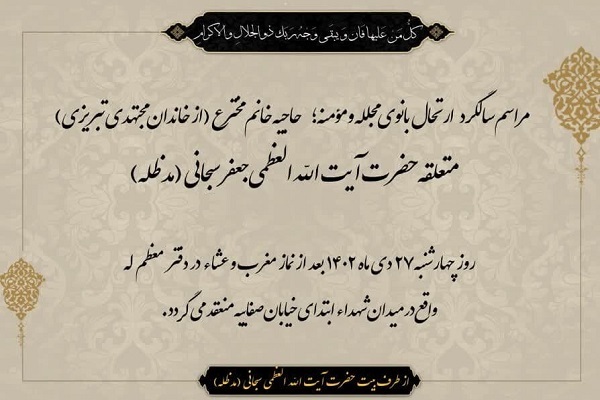 كُلُّ مَنْ عَلَيها فَانٍ وَ يَبْقَى وَجْهُ رَبِّكَ ذُو الْجَلَالِ وَ الْإِكْرَامِ
مراسم سالگرد ارتحال بانوی مجلله و مؤمنه؛ حاجیه خانم مخترع (از خاندان مجتهدی تبریزی)
متعلقه حضرت آیت الله العظمی جعفر سبحانی (مدظله)
روز چهارشنبه ۲۷ دی ماه ۱۴۰۲ بعد از نماز مغرب و عشاء در دفتر معظم له
واقع در میدان شهداء ابتدای خیابان صفاییه منعقد می گردد.
از طرف بیت حضرت آیت الله العظمی سبحانی (مدظله)